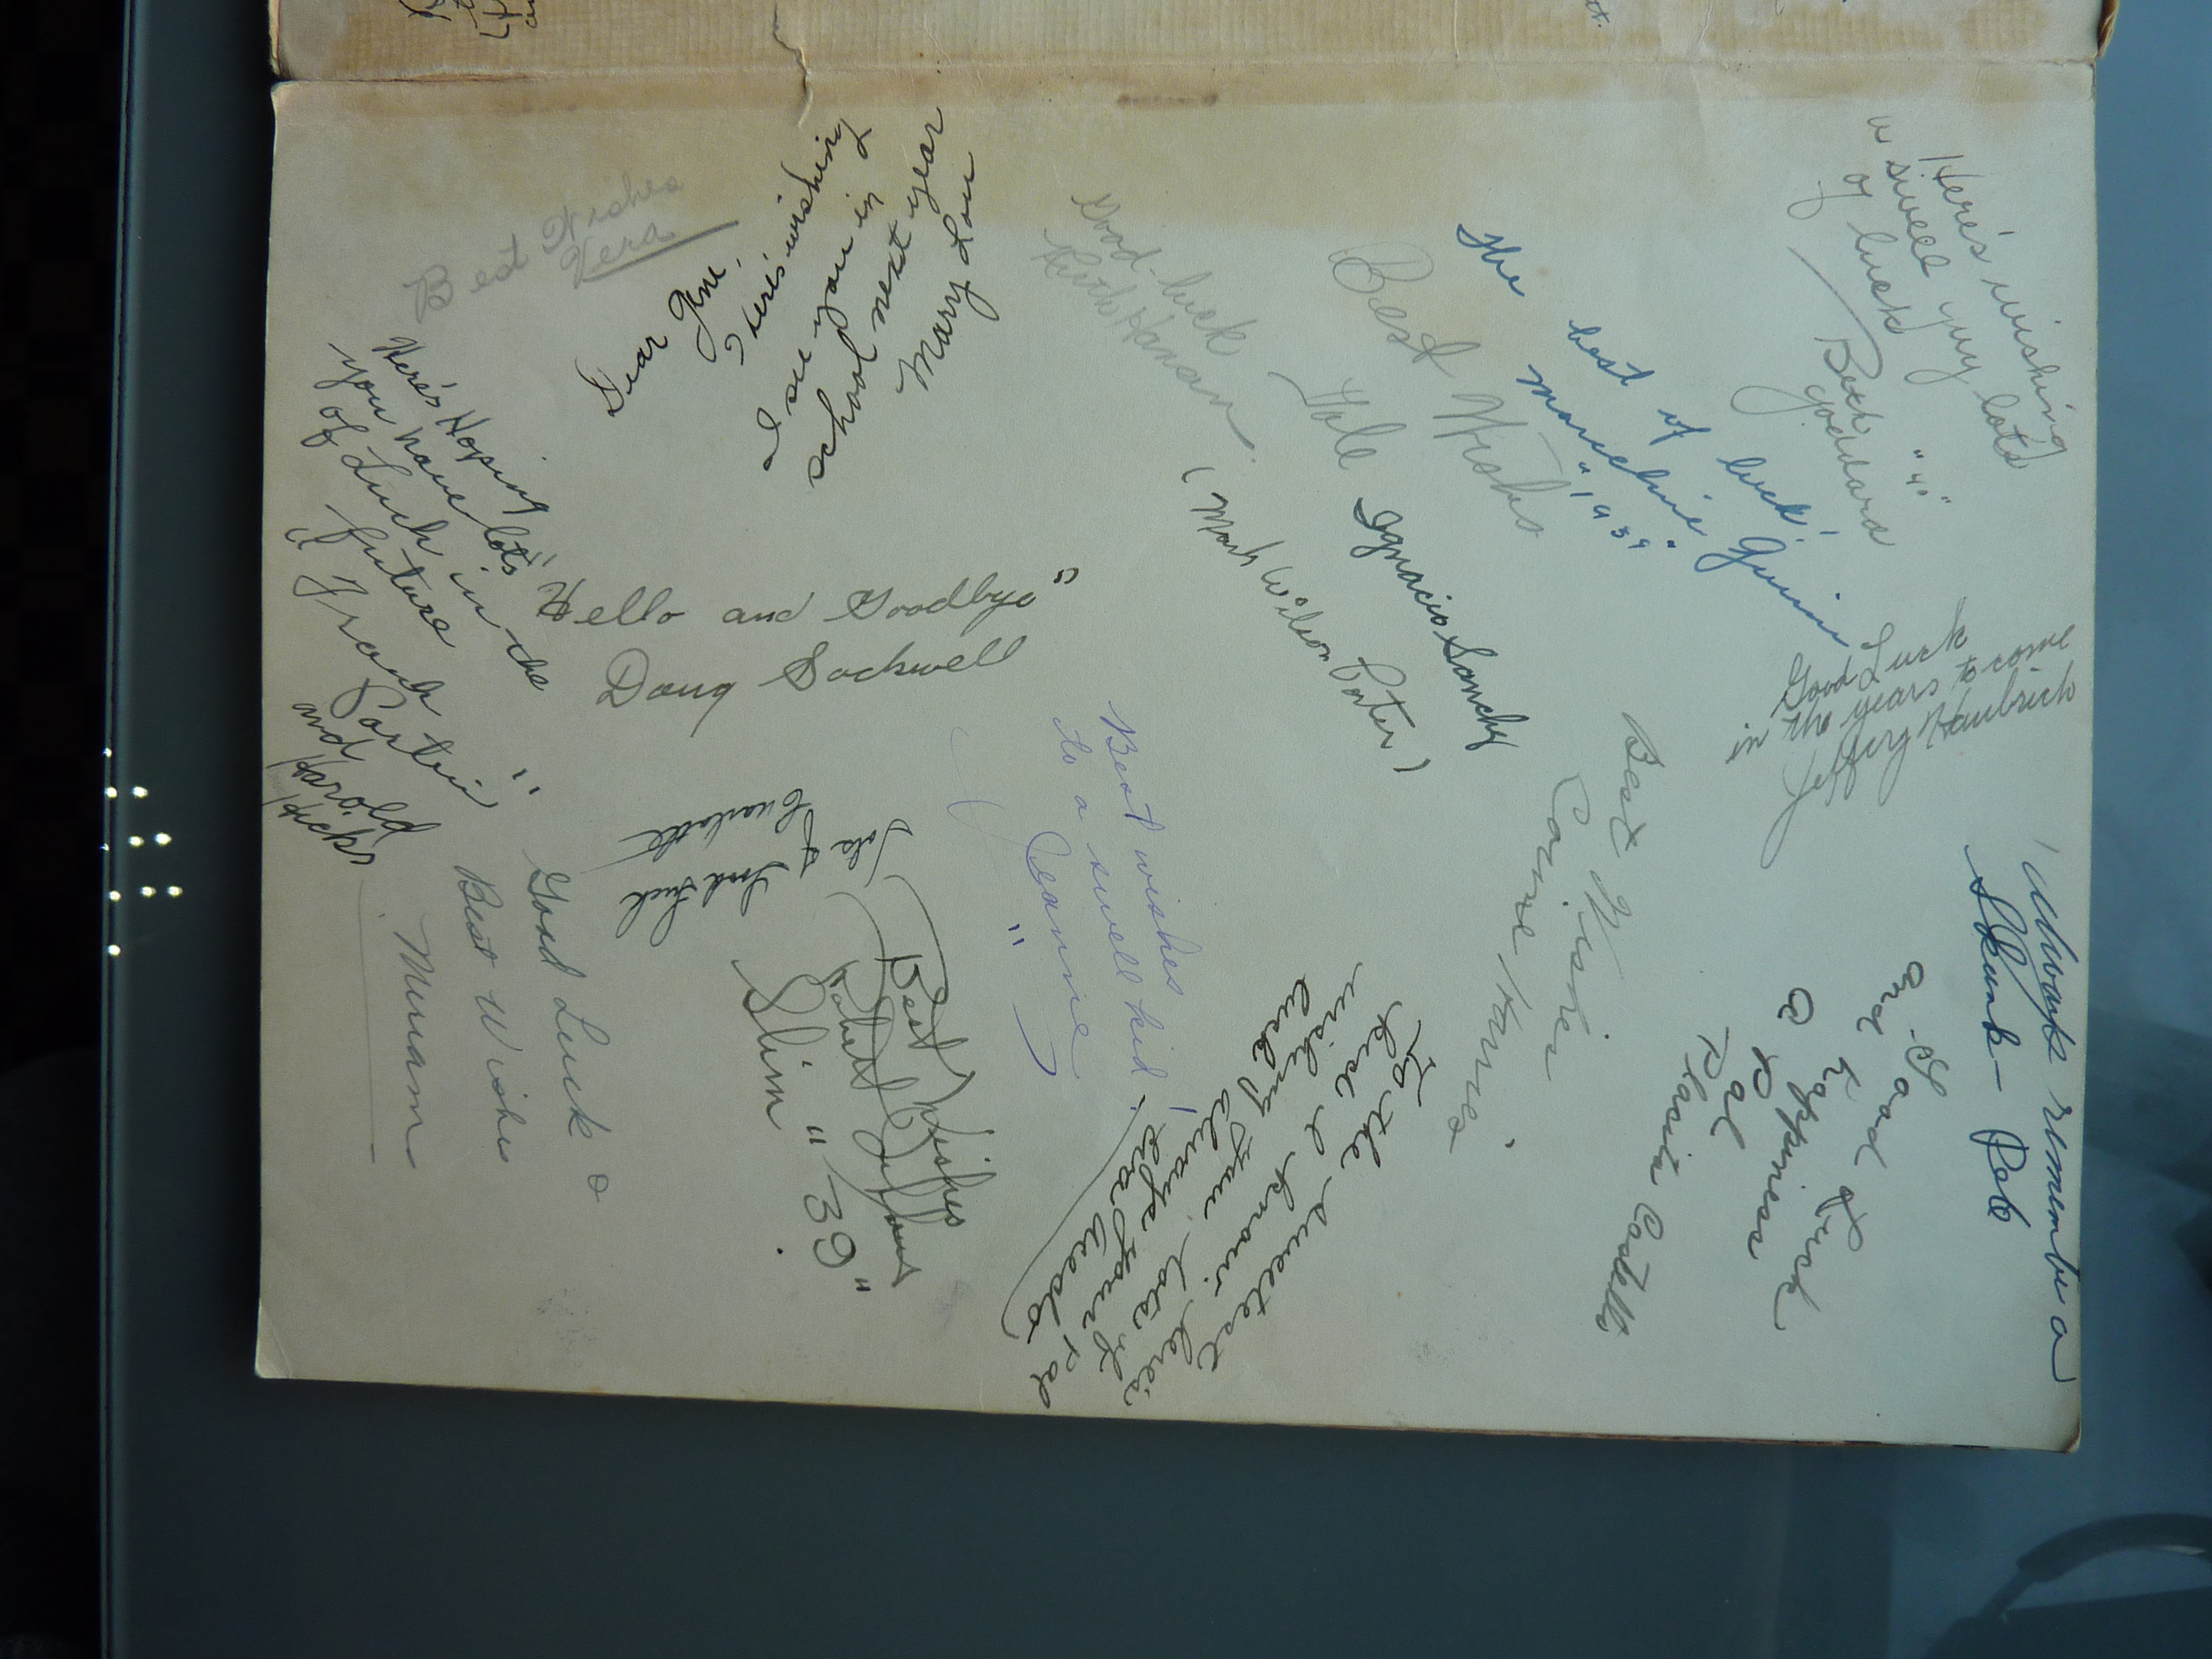 Best Wishes
Vera
Dear Gene,
Here's wishing
I see you in
school next year
Mary Lou
Good-luck
Ruth Hanson
Best Wishes
Yale
The best of luck!
Maxchine Guinn
"1939"
Here's wishing
a swell guy lots
of luck
Beck
Goddard
"40"
Here's Hoping
you have lots
of Luck in the
future
"Frank Partin"
and
Harold
Hicks
"Hello and Goodbye"
Doug Sockwell
Ignacio Sanchy
(Mark Wilson Porter)
Good Luck
in the years to come
Jeffery Haubrich
Lola &
Charlotte
Good Luck
Good Luck &
Best Wishes
Miriam
Best Wishes
Slim "39"
Best wishes
to a swell kid!
"Jeannie"
To the sweetest
kid I know. here's
wishing you lots of
luck always your pal
Best Wishes
and Good Luck
Happiness
a Pal
Always remember a
Skunk - Pete